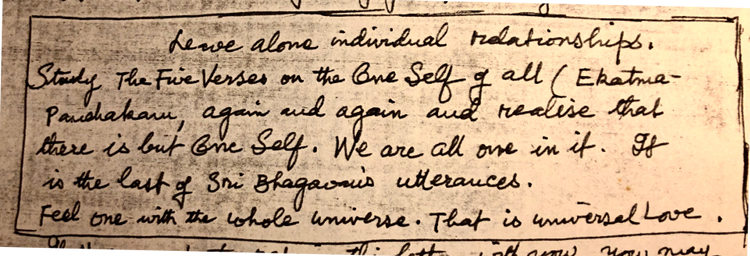 Leave alone individual relationships.
Study The Five Verses on the One Self of all (Ekatma-
Panchakam, again and again and realise that
there is but One Self. We are all one in it. It
is the last of Sri Bhagavan's utterances.
Feel one with the whole universe. That is universal Love.
this letter with you, you may